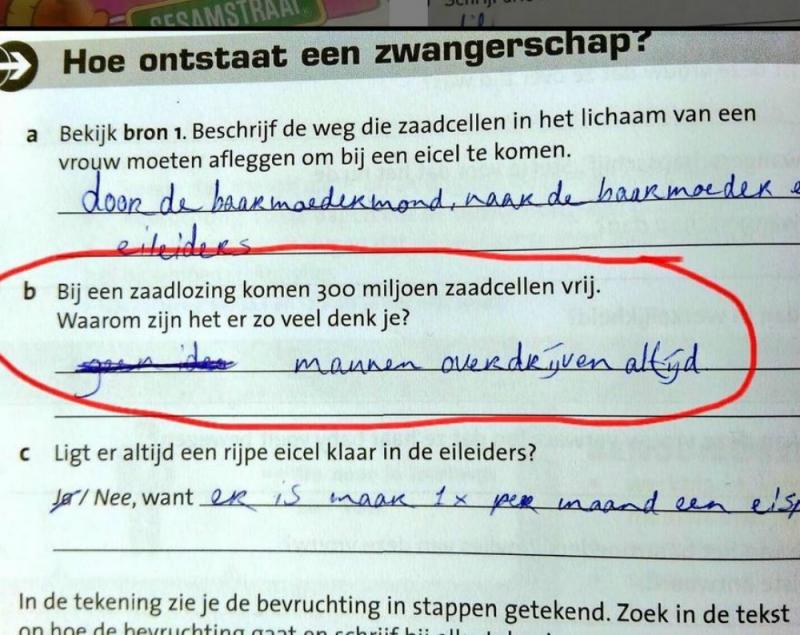 SESAMSTRAAT
Hoe ontstaat een zwangerschap?
a Bekijk bron 1. Beschrijf de weg die zaadcellen in het lichaam van een
vrouw moeten afleggen om bij een eicel te komen.
door de baarmoedermond, naar de baarmoeder e
eileiders
b Bij een zaadlozing komen 300 miljoen zaadcellen vrij.
Waarom zijn het er zo veel denk je?
mannen overdrijven altijd
c Ligt er altijd een rijpe eicel klaar in de eileiders?
Ja / Nee, want er is maar 1x per maand een eisp
In de tekening zie je de bevruchting in stappen getekend. Zoek in de tekst
op hoe de bevruchting gaat en schrijf bij